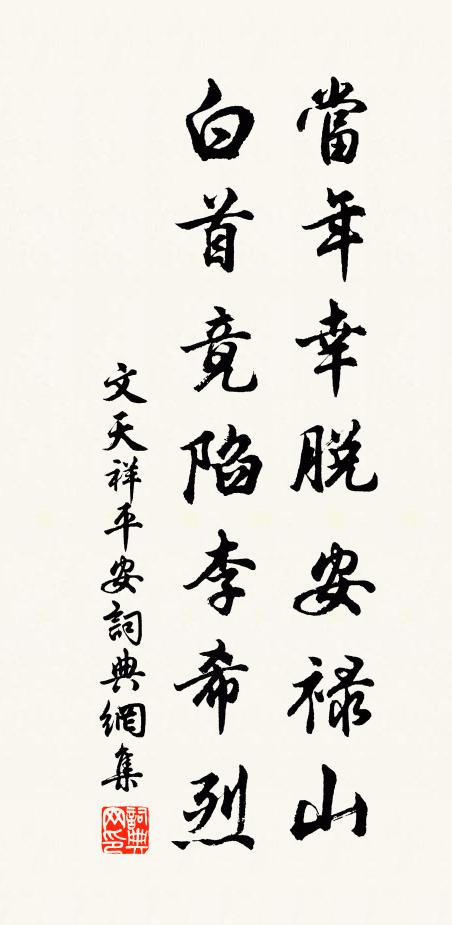 當年幸脫安祿山
白首竟陷李希烈
文天祥平安詞典網集
詞典网印